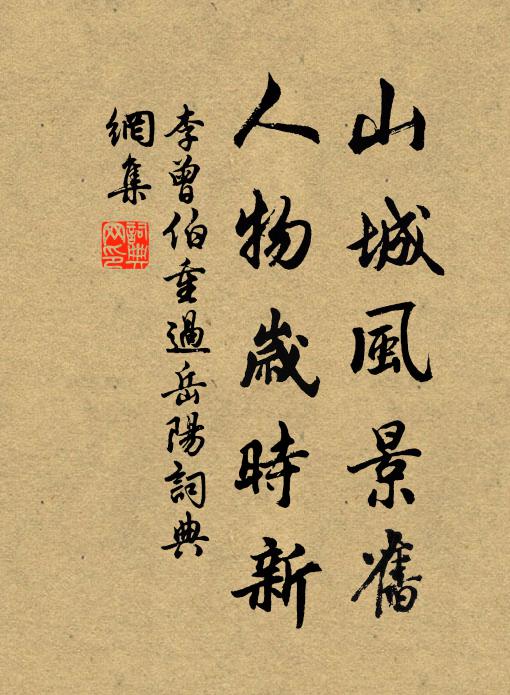 山城風景舊
人物歲時新
李曾伯重過岳陽詞典
網集
詞典網印